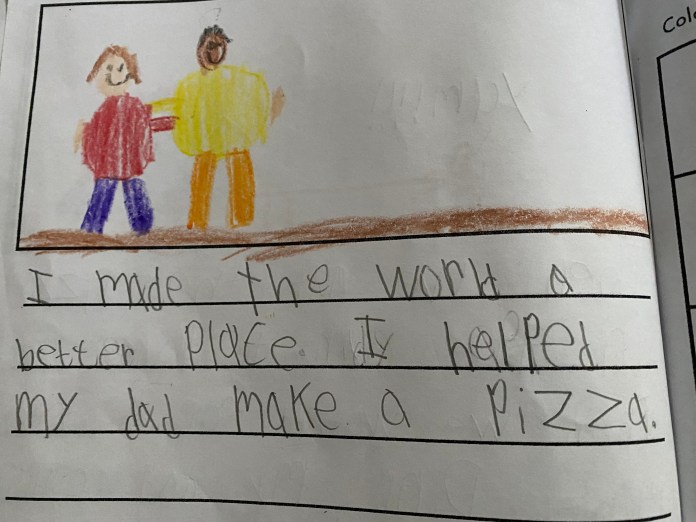 Colo
I made the world a
better place. I helped
my dad make a pizza.